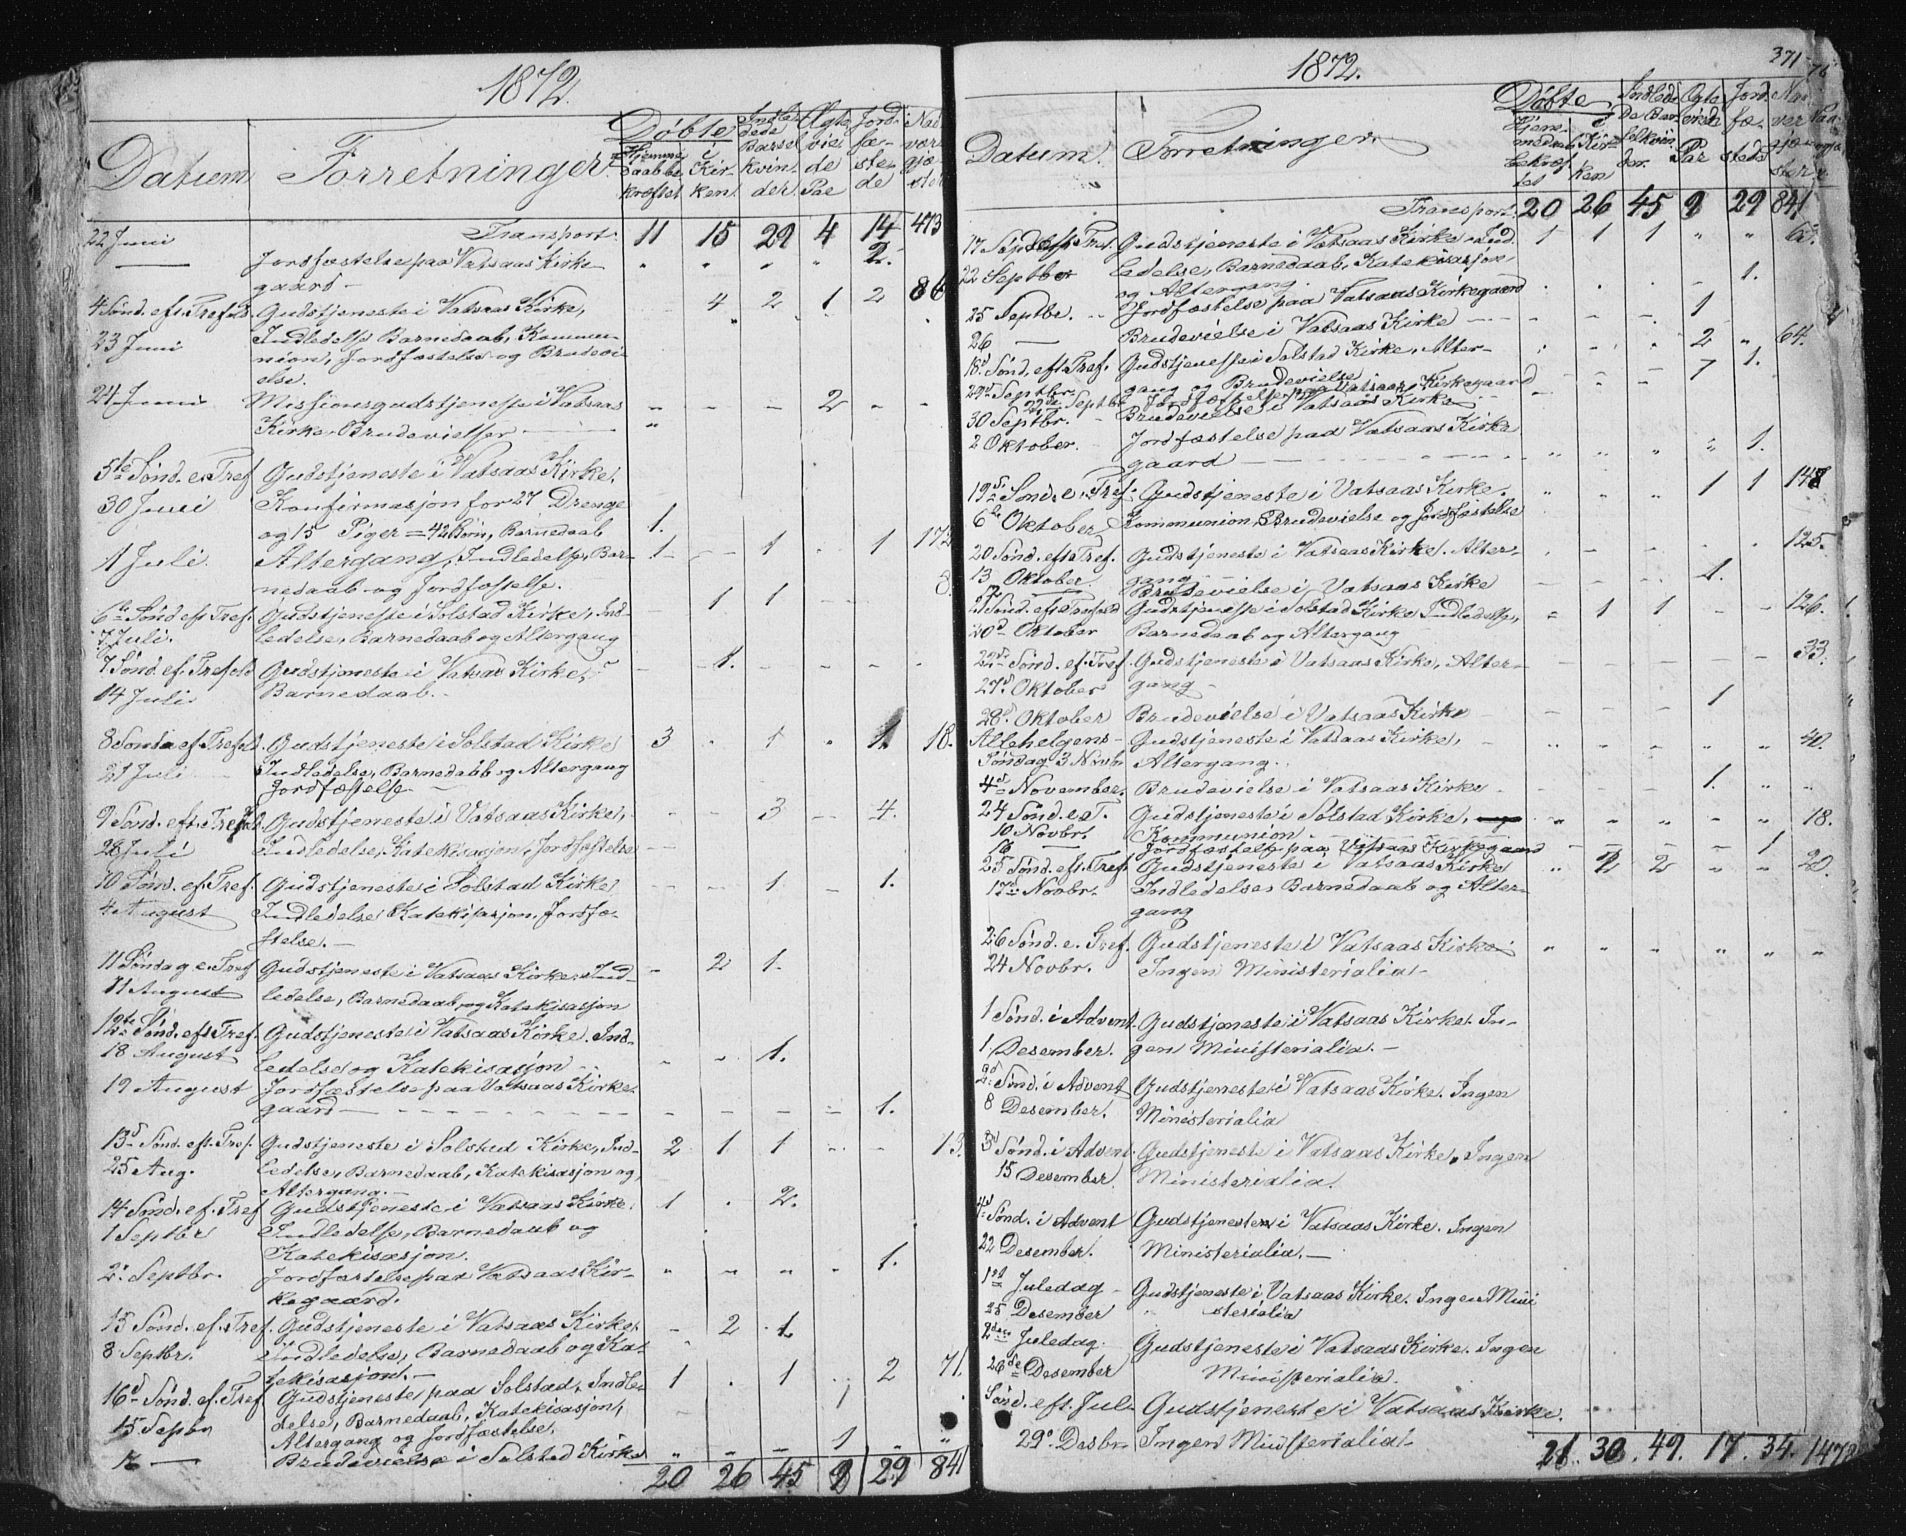 1872.
Datum Forretninger. Døbte Hjemmedaab bekræftet i Kirken Indledede Barselkvinder Ægteviede Par Jordfæstede Nadvergjæster
22 Juni Transport 11 15 29 4 14 473
— Jordfæstelse paa Vatsaas Kirke- " " " " 2.
gaard —
4 Sønd. eft. Trefold. Gudstjeneste i Vatsaas Kirke, 4 2 1 2 86
23 Juni Indledelse Barnedaab, Kommu-
nion, Jordfæstelse og Brudevi-
else.
24 Juni Missionsgudstjeneste i Vatsaas - - - 2 - -
Kirke. Brudevielser —
5te Sønd. e. Tref. Gudstjeneste i Vatsaas Kirke.
30 Juni Konfirmasjon for 27 Drenge
og 15 Piger = 42 Børn, Barnedaab 1.
1 Juli. Altergang, Indledelse, Bar- 1 - - 1 . 1 173
nedaab og Jordfæstelse.
6te Sønd. eft. Tref. Gudstjeneste i Solstad Kirke, Ind- - 1 1 - - 8.
7 Juli. ledelse, Barnedaab og Altergang
7 Sønd. ef. Trefold Gudstjeneste i Vatsaas Kirke, - 1. - - - -
14 Juli Barnedaab.
8 Sønda ef. Trefold. Gudstjeneste i Solstad Kirke 3 . 1 . 1. 18.
21 Juli Indledelse, Barnedaab og Altergang
Jordfæstelse —
9 Sønd. eft. Trefold. Gudstjeneste i Vatsaas Kirke, - - 3 - 4.
28 Juli Indledelse, Katekisasjon, Jordfæstelse
10 Sønd. ef. Tref. Gudstjeneste i Solstad Kirke - - 1 - 1.
4 August Indledelse Katekisasjon, Jordfæ-
stelse. —
11 Søndag e. Tref Gudstjeneste i Vatsaas Kirke. Ind- - 2 1.
11 August ledelse, Barnedaab og Katekisasjon
12te Sønd. eft. Tref. Gudstjeneste i Vatsaas Kirke. Ind-
18 August ledelse og Katekisasjon - - 1.
19 August Jordfæstelse paa Vatsaas Kirke-
gaard - - - - - - 1.
13d Sønd. eft. Tref. Gudstjeneste i Solstad Kirke, Ind- 2 1 1 - - 13.
25 Aug. ledelse, Barnedaab, Katekisasjon og
Altergang. —
14 Sønd. ef. Tref Gudstjeneste i Vatsaas Kirke. 1 . 2.
1 Septbr Indledelse, Barnedaab og
Katekisasjon.
2. Septbr. Jordfæstelse paa Vatsaas Kir- " " " " 1.
kegaard.
15 Sønd. ef. Tref. Gudstjeneste i Vatsaas Kirke. - 2 1
8 Septbr. Indledelse, Barnedaab og Ka-
tekisasjon. —
16d Sønd. ef. Tref Gudstjeneste paa Solstad, Indle- 1 . 1 . 2 71.
15 Sepbr delse, Barnedaab, Katekisasjon,
Altergang og Jordfæstelse.
— Brudevielse i Solstad Kirke " - - 1 " "
20 26 45 9 29 841
1872. 371
Datum. Forretninger. Døbte Hjemmedaab bekræftet i Kirken Indledede Barselkvinder Ægteviede Par Jordfæstede Nadvergjæster
Transport. 20 26 45 9 29 841
17 Sønd. eft. Tref. Gudstjeneste i Vatsaas Kirke. Ind- 1 1 1 " "
22 Septber ledelse, Barnedaab, Katekisasjon
og Altergang.
25 Septbr. Jordfæstelse paa Vatsaas Kirkegaard 1.
26 — Brudevielse i Vatsaas Kirke 1
18d Sønd. eft. Tref. Gudstjeneste i Solstad Kirke, Alter- 2 " 64.
29d Septbr. gang og Brudevielse
Septbr Jordfæstelse paa Vatsaas Kirkegaard 1.
30 Septbr. Brudevielse i Vatsaas Kirke
2 Oktober. Jordfæstelse paa Vatsaas Kirke
gaard " " " " 1.
19d Sønd. e. Tref. Gudstjeneste i Vatsaas Kirke. " " " 1 1 148
6te Oktober Kommunion, Brudevielse og Jordfæstelse
20 Sønd. eft. Tref. Gudstjeneste i Vatsaas Kirke. Alter- 125.
13 Oktober. gang
— Brudevielse i Vatsaas Kirke 1.
21 Sønd. eft. Trefold Gudstjeneste i Solstad Kirke Indledelse, - 1 1 - - 126.
20d Oktober Barnedaab og Altergang
22d Sønd. ef. Tref. Gudstjeneste i Vatsaas Kirke, Alter- - - - - - 33.
27d Oktober gang —
28d Oktober Brudevielse i Vatsaas Kirke 1
Allehelgens- Gudstjeneste i Vatsaas Kirke, " " " " " 40.
Søndag 3 Novbr Altergang.
4d November. Brudevielse i Vatsaas Kirke 1.
24 Sønd. e. T. Gudstjeneste i Solstad Kirke, " " " " " 18.
10 Novbr. Kommunion.
16 — Jordfæstelse paa Vatsaas Kirkegaard 1
25 Sønd. eft. Tref. Gudstjeneste i Vatsaas Kirke " 2 2 " " 20.
17de Novbr. Indledelse, Barnedaab og Alter-
gang
26 Sønd. e. Tref. Gudstjeneste i Vatsaas Kirke " " " " " "
24 Novbr. Ingen Ministerialia —
1 Sønd. i Advent. Gudstjeneste i Vatsaas Kirke. In-
1. Desember. gen Ministerialia. —
2d Sønd. i Advent Gudstjeneste i Vatsaas Kirke. Ingen
8 Desember. Ministerialia
3d Sønd. i Advent. Gudstjeneste i Vatsaas Kirke. Ingen
15 Desember. Ministerialia.
4d Sønd. i Advent Gudstjeneste i Vatsaas Kirke. Ingen
22 Desember. Ministerialia. —
1st Juledag Gudstjeneste i Vatsaas Kirke. Ingen Mini
25 Desember sterialia
2den Juledag. Gudstjeneste i Vatsaas Kirke. Ingen
26de Desember Ministerialia.
Sønd. eft. Jul. Gudstjeneste i Vatsaas Kirke.
29. Desbr. Ingen Ministerialia.
21. 30. 49. 17. 34. 1478